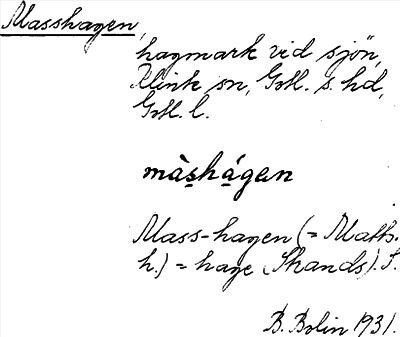 Masshagen,
hagmark vid sjön,
Klink sn, Gotl. s. hd,
Gotl. l.
màshágen
Mass-hagen (= Math.
h.) = hage
B. Bolin 1931.